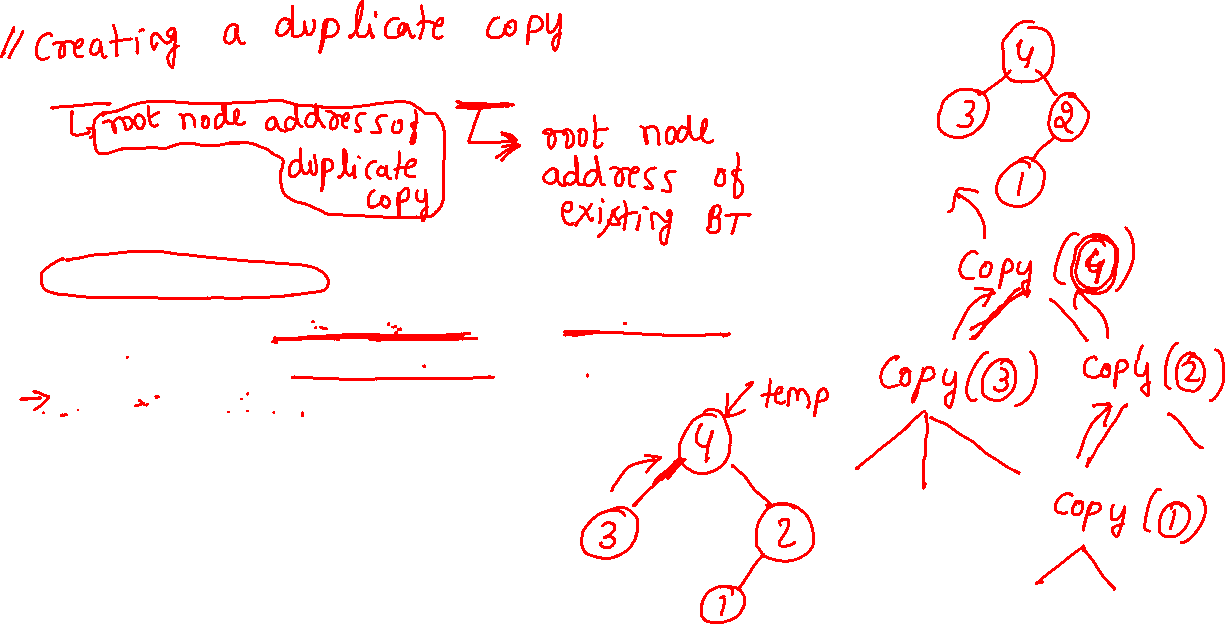 // Creating a duplicate copy
root node address of
duplicate
copy
root node
address of
existing BT
4
3
2
1
Copy (4)
Copy (3)
Copy (2)
Copy (1)
temp
4
3
2
1